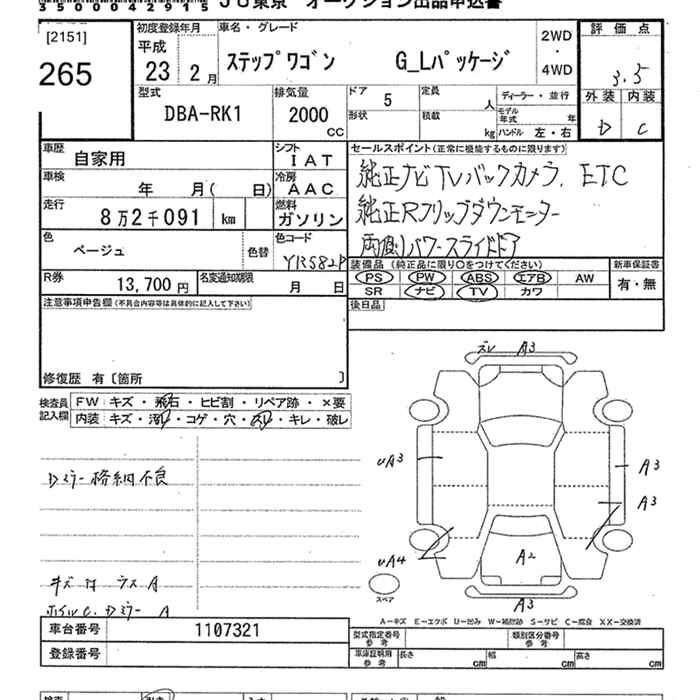 35000042915 JU東京 オークション出品申込書
[2151]
265
初度登録年月
平成
23 2月
車名・グレード
ステップワゴン G_Lパッケージ
2WD
・
4WD
評価点
3.5
外装 内装
D C
型式
DBA-RK1
排気量
2000
CC
ドア 5
形状
定員 人
積載 kg
ディーラー・並行
モデル年式 年
ハンドル 左・右
車歴
自家用
シフト
IAT
車検
年 月( 日)
冷房
AAC
走行
8万2千091 km
燃料
ガソリン
色
ベージュ
色替
色コード
YR582P
R券
13,700円
名変通知期限
月 日
セールスポイント(正常に機能するものに限ります)
純正ナビTVバックカメラ、ETC
純正Rフリップダウンモニター
両側パワースライドドア
装備品(純正品に限り○をつけてください)
PS PW ABS エアB AW
SR ナビ TV カワ
新車保証書
有・無
後日品
注意事項申告欄(不具合内容等は具体的に記入して下さい)
修復歴 有〔箇所 〕
検査員記入欄
FW:キズ・飛石・ヒビ割・リペア跡・×要
内装:キズ・汚れ・コゲ・穴・スレ・キレ・破レ
Dミラー格納不良
キズ 付 ラス A
ホイルC. Dミラー A
ズレ A3
UA3
A3
A3
UA4
A2
A3
スペア
A-キズ E-エクボ U-凹み W-補修跡 S-サビ C-腐食 XX-交換済
車台番号 1107321
登録番号
型式指定番号
参考
類別区分番号
参考
車庫証明用
参考
長さ cm
幅 cm
高さ cm